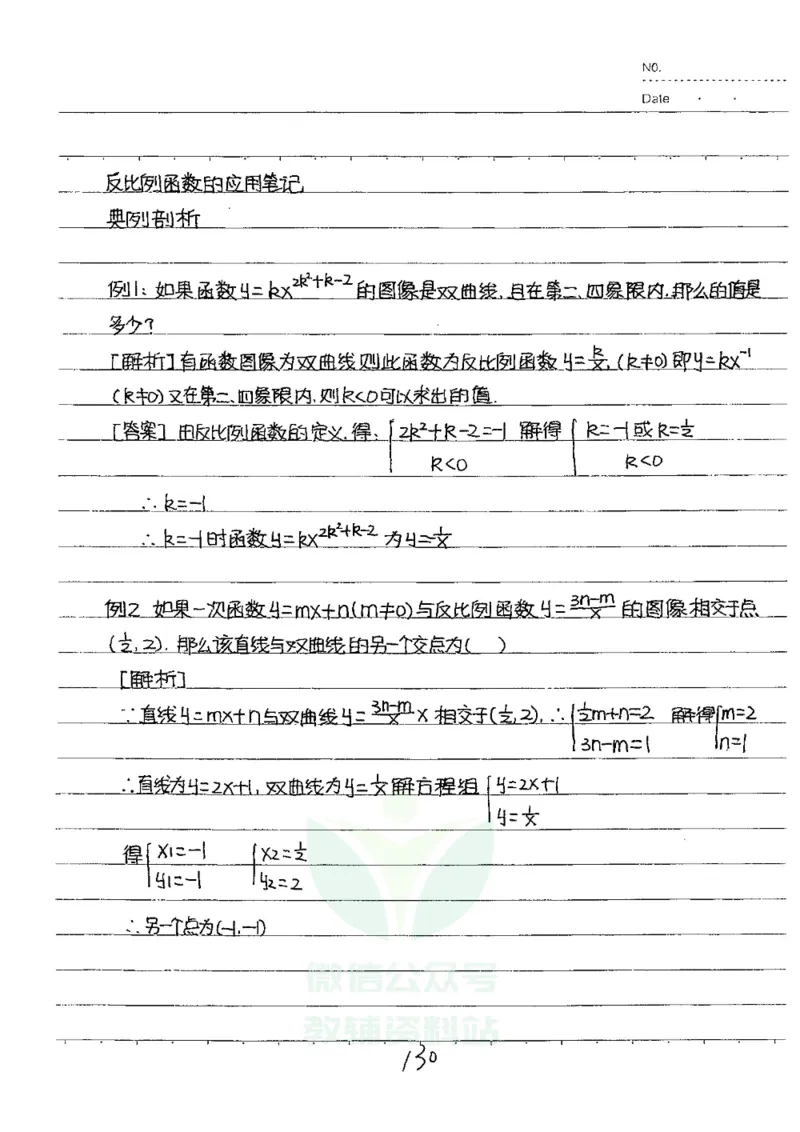 NO.
Date
反比例函数的应用笔记
典例剖析
例1: 如果函数y=kx^{2k²+k-2}的图像是双曲线,且在第二、四象限内,那么的值是
多少?
[解析]有函数图象为双曲线则此函数为反比例函数y=k/x,(k≠0)即y=kx⁻¹
(k≠0)又在第二、四象限内,则k<0可以求出的值.
[答案] 由反比例函数的定义,得: {2k²+k-2=-1 解得 {k=-1或k=1/2
k<0 k<0
∴k=-1
∴k=-1时函数y=kx^{2k²+k-2}为y=1/x
例2 如果一次函数y=mx+n(m≠0)与反比例函数y=3n-m/x的图像相交于点
(1/2,2). 那么该直线与双曲线的另一个交点为( )
[解析]
∵直线y=mx+n与双曲线y=3n-m/x x 相交于(1/2,2),∴{1/2m+n=2 解得{m=2
3n-m=1 n=1
∴直线为y=2x+1,双曲线为y=1/x解方程组{y=2x+1
y=1/x
得{x1=-1 {x2=1/2
y1=-1 y2=2
∴另一个点为(-1,-1)
微信公众号
教辅资料站
130